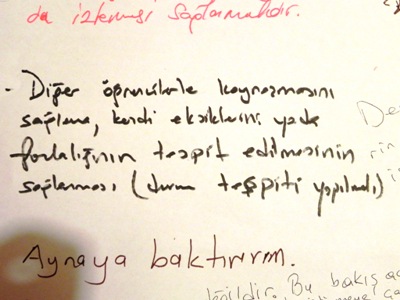 da izlemesi saptamaktadır.
- Diğer öğrencilerle kaynaşmasını
sağlama, kendi eksiklerini yada
fazlalığının tespit edilmesinin
sağlanması (durum tespiti yapılmalı)
De
rin
i
Aynaya baktırırım.
değildir. Bu bakış aç